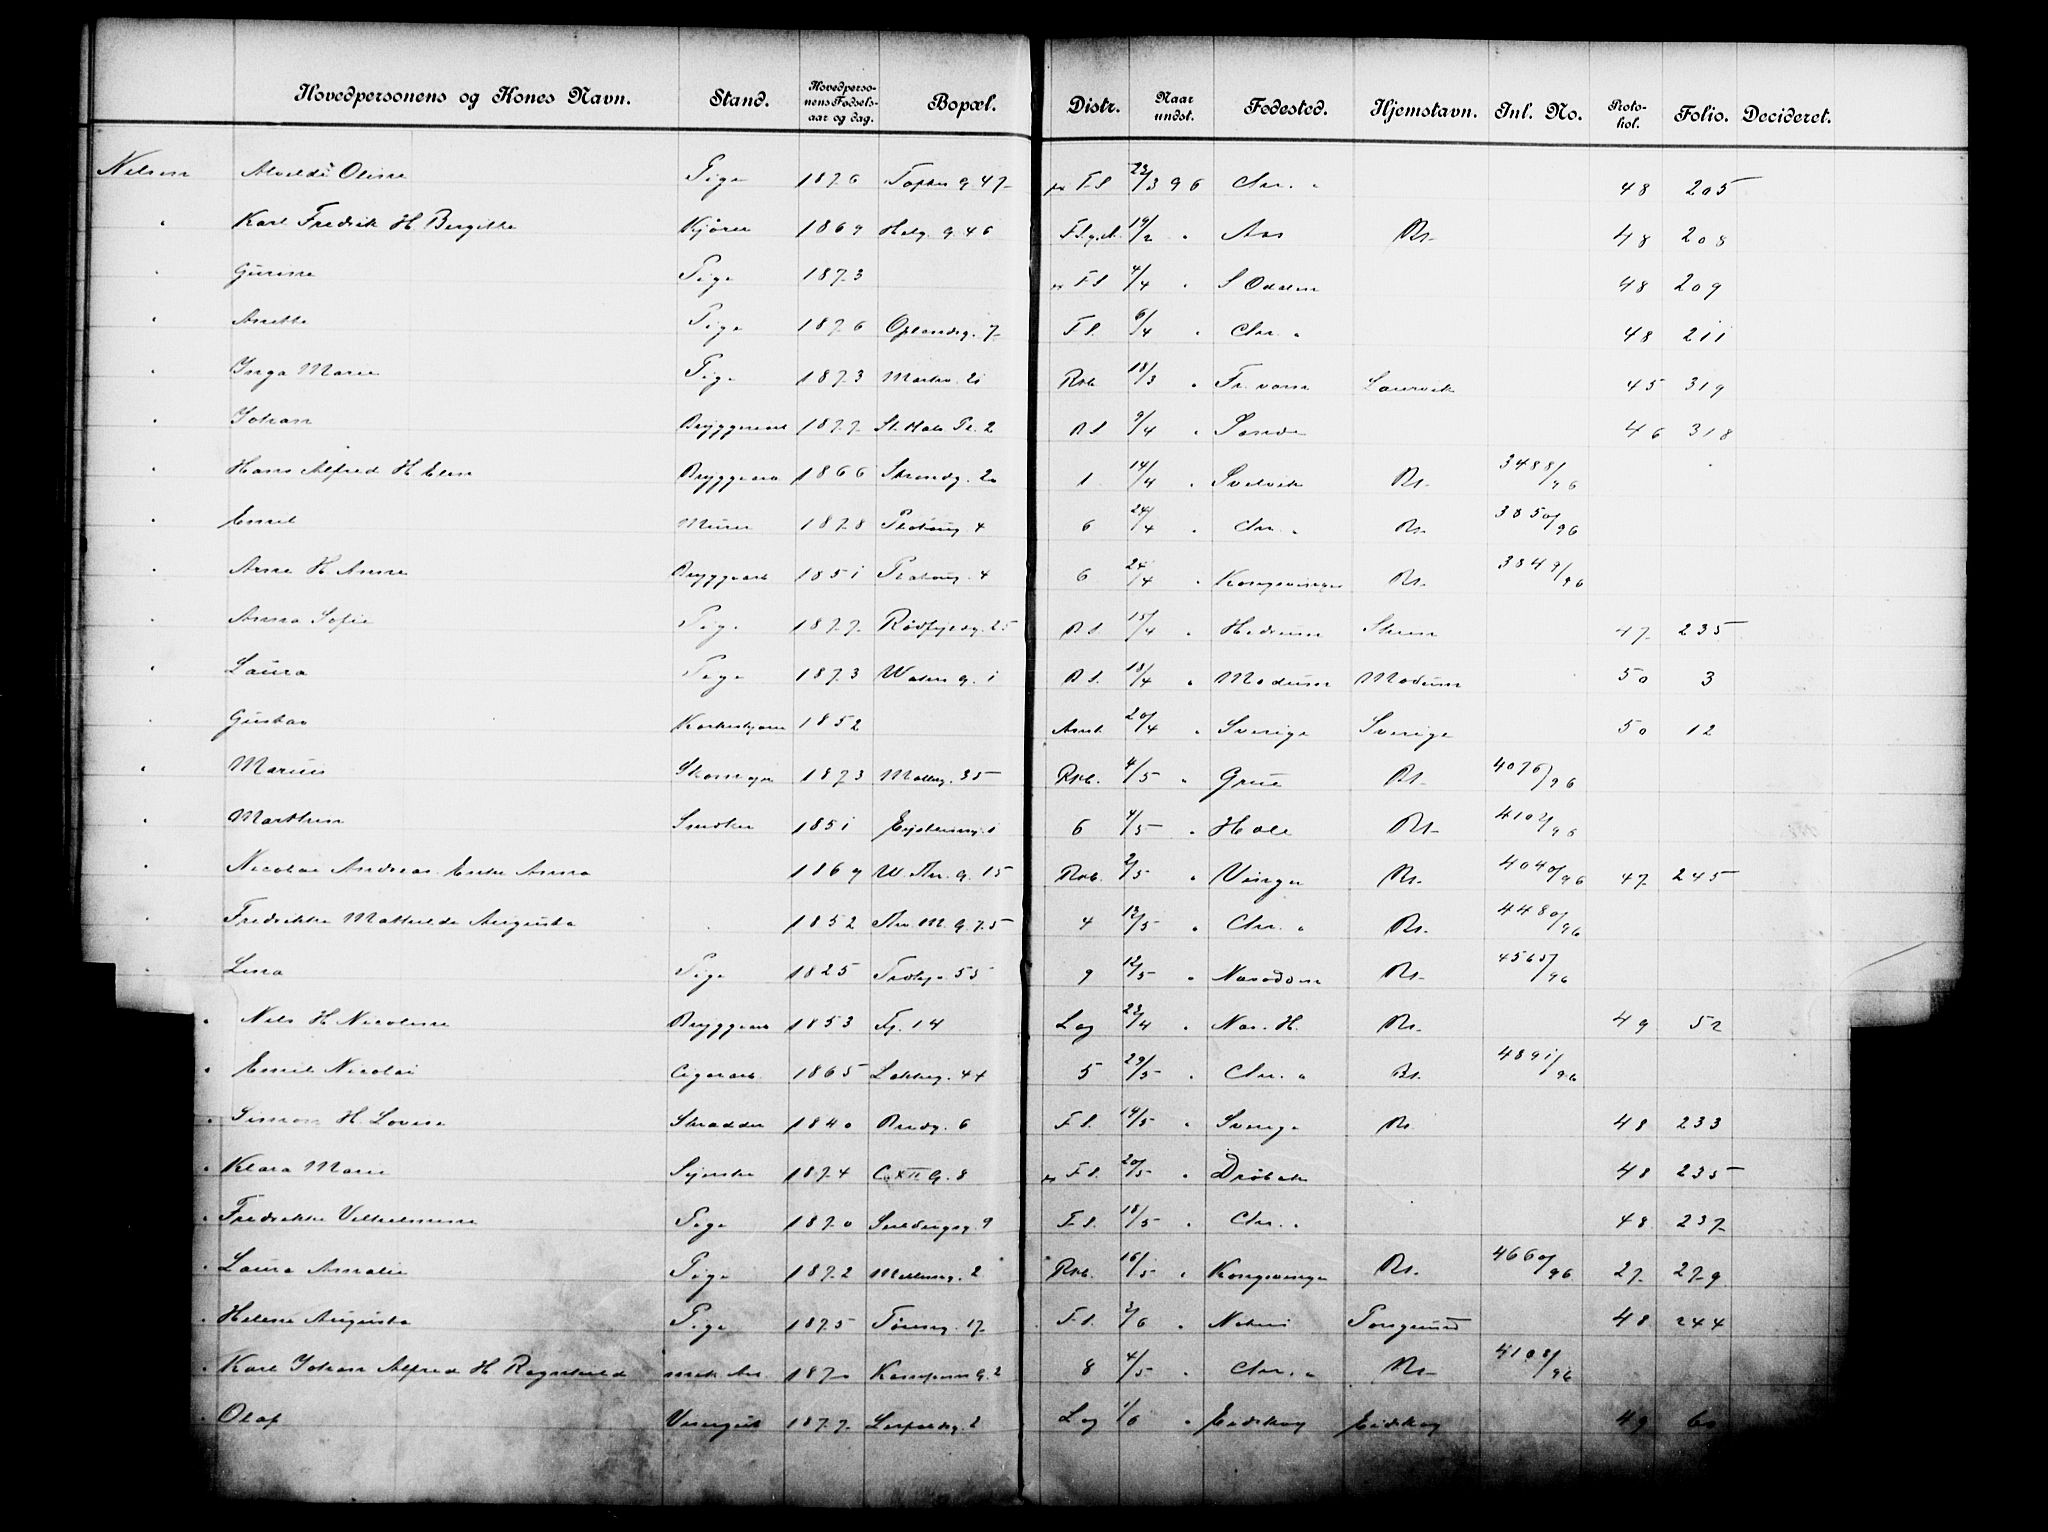 Hovedpersonens og Kones Navn. Stand. Hovedpersonens Fødselsaar og dag. Bopæl. Distr. Naar undst. Fødested. Hjemstavn. Inl. No. Protokol. Folio. Decideret.
Nilsen Alvilde Oline Pige 1876 g 47 F.S. 23/3 96 Chr. " 48 205
" Karl Fredrik H. Bergitte Kjører 1869 Helg. g. 46 19/2 " Aas Bt. 48 208
" Gurine Pige 1873 F.S. 4/4 " S Odalen 48 209
" Anette Pige 1876 Oplandsg. 7 F.S. 6/4 " Chr. " 48 211
" Inga Marie Pige 1873 Markv. 21 Rvb. 18/3 " Fr.værn Laurvik 45 319
" Johan Bryggearb 1877 St. Hals Pl. 2 B S 9/4 " Sande 46 318
" Hans Alfred H. Elen Bryggearb 1866 Strandg. 20 1 14/4 " Svelvik Bt. 3488/96
" Emil Murer 1878 Platoug. 4 6 24/4 " Chr. " Bt. 3850/96
" Arne H. Anne Bryggearb 1851 Platoug. 4 6 24/4 " Kongsvinger Bt. 3849/96
" Anna Sofie Pige 1877 Rødfyldg. 25 B S 15/4 " Hedrum Skien 47 235
" Laura Pige 1873 Waldm. g. 1 B S. 18/4 " Modum Modum 50 3
" Gustav 1852 20/4 " Sverige Sverige 50 12
" Marius Skomager 1873 Møllerg. 35 Rvb. 4/5 " Grue Bt. 4076/96
" Marthin Snedker 1851 Eilertsensg. 1 6 4/5 " Hole Bt. 4102/96
" Nicolai Andreas Enke Anna 1869 W. Thr. g. 15 Rvb. 2/5 " Vinger Bt. 4040/96 47 245
" Fredrikke Mathilde Augusta " 1852 Thv. M. g. 75 4 12/5 " Chr. " Bt. 4480/96
" Lina Pige 1825 55 9 12/5 " Næsodden Bt. 4565/96
" Nils H. Nicoline Bryggearb 1853 14 Lag 22/4 " Nor. H. Bt. 49 52
" Emil Nicolai Cigararb. 1865 Løkkeg. 44 5 29/5 " Chr. " Bt. 4891/96
" Simon H. Lovise Skrædder 1840 Bredg. 6 F.S. 19/5 " Sverige Bt. 48 233
" Klara Marie Syerske 1874 C. XII G. 8 F.S. 20/5 " Drøbak 48 235
" Fredrikke Vilhelmine Pige 1870 Seilduksg. 9 F.S. 18/5 " Chr. " 48 237
" Laura Amalie Pige 1872 Møllerg. 2 Rvb. 16/5 " Kongsvinger Bt. 4660/96 27 279
" Helene Augusta Pige 1875 Tøieng. 17 F.S. 2/6 " 48 244
" Karl Johan Alfred H. Ragnhild mek Arb. 1870 Kampens g. 2 8 4/5 " Chr. " Bt. 4108/96
" Olaf Visergut 1877 Leirfaldsg. 2 Lag 1/6 " Eidskog Eidskog 49 60